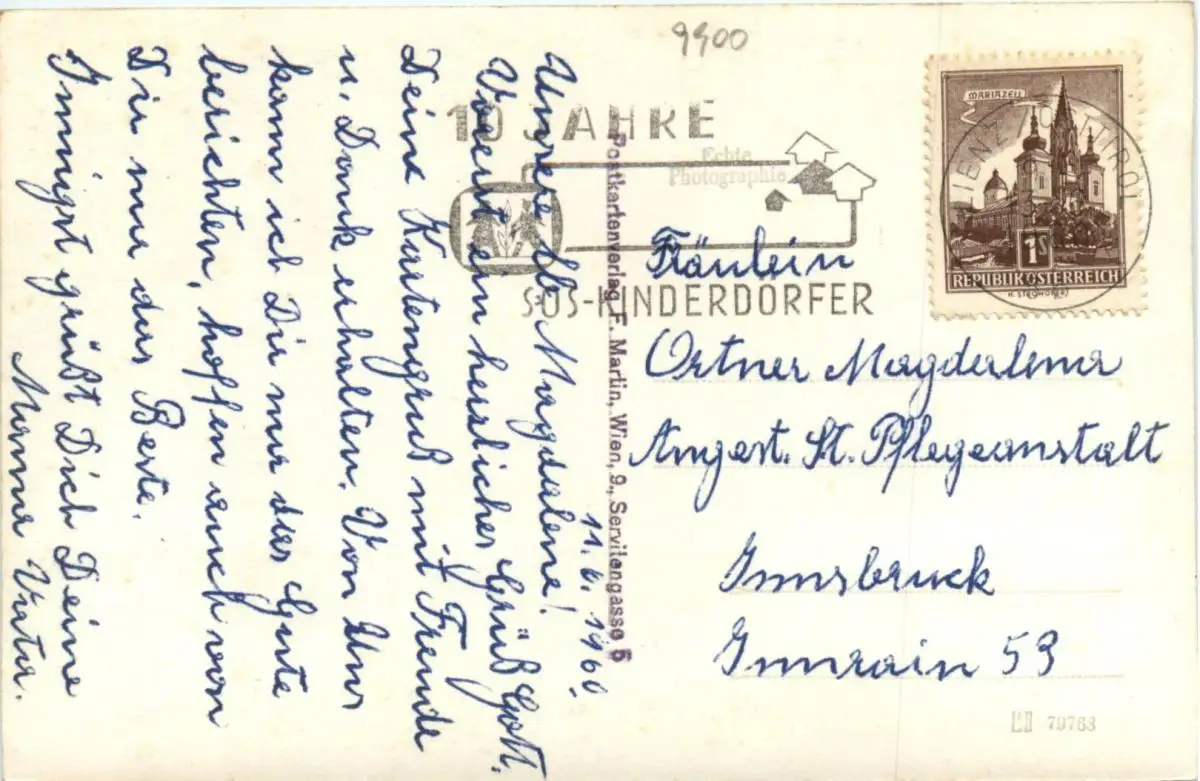 9900
10 JAHRE
SOS-KINDERDÖRFER
Echte
Photographie
MARIAZELL
LIENZ / OSTTIROL
1S
REPUBLIK ÖSTERREICH
Postkartenverlag F. Martin, Wien, 9., Servitengasse 5
11.6.1960.
Unsere lb. Magdalena!
Voerst ein herzliches Grüß Gott.
Deine Kartengruß mit Freude
u. Dank erhalten. Von Uns
kann ich Dir nur das Gute
berichten, hoffen auch von
Dir nur das Beste.
Innigst grüßt Dich Deine
Mama Vater.
Fräulein
Ortner Magdalena
Angest. St. Pflegeanstalt
Innsbruck
Innrain 53
79763